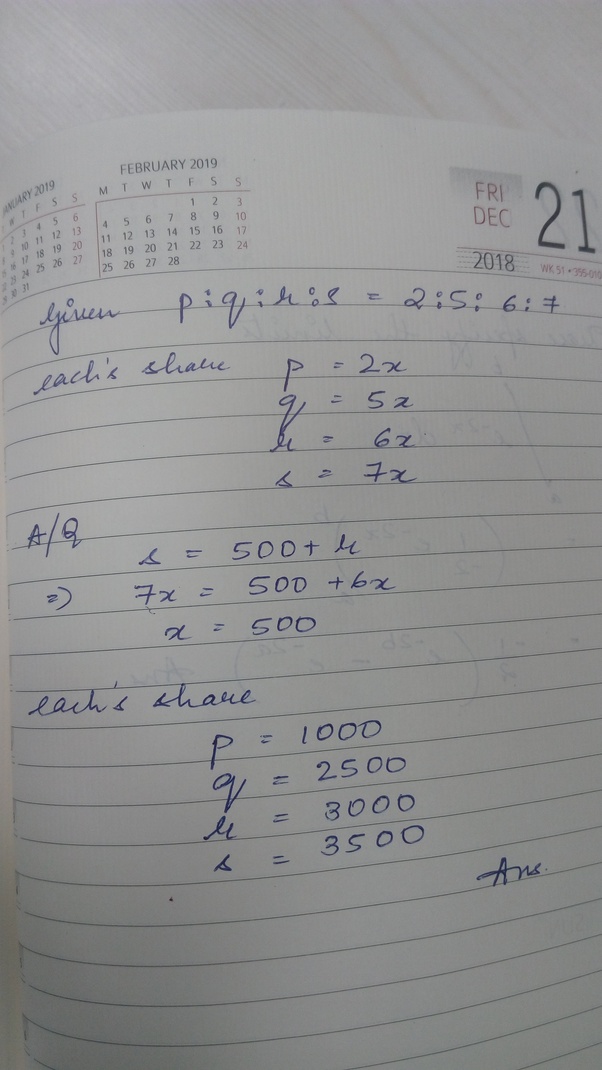 JANUARY 2019
W T F S S
1 2 3 4 5 6
9 10 11 12 13
16 17 18 19 20
23 24 25 26 27
30 31
FEBRUARY 2019
M T W T F S S
1 2 3
4 5 6 7 8 9 10
11 12 13 14 15 16 17
18 19 20 21 22 23 24
25 26 27 28
FRI
DEC
21
2018
WK 51 • 355-010
Given p:q:r:s = 2:5:6:7
each's share p = 2x
q = 5x
r = 6x
s = 7x
A/Q
s = 500 + r
=) 7x = 500 + 6x
x = 500
each's share
p = 1000
q = 2500
r = 3000
s = 3500
Ans.